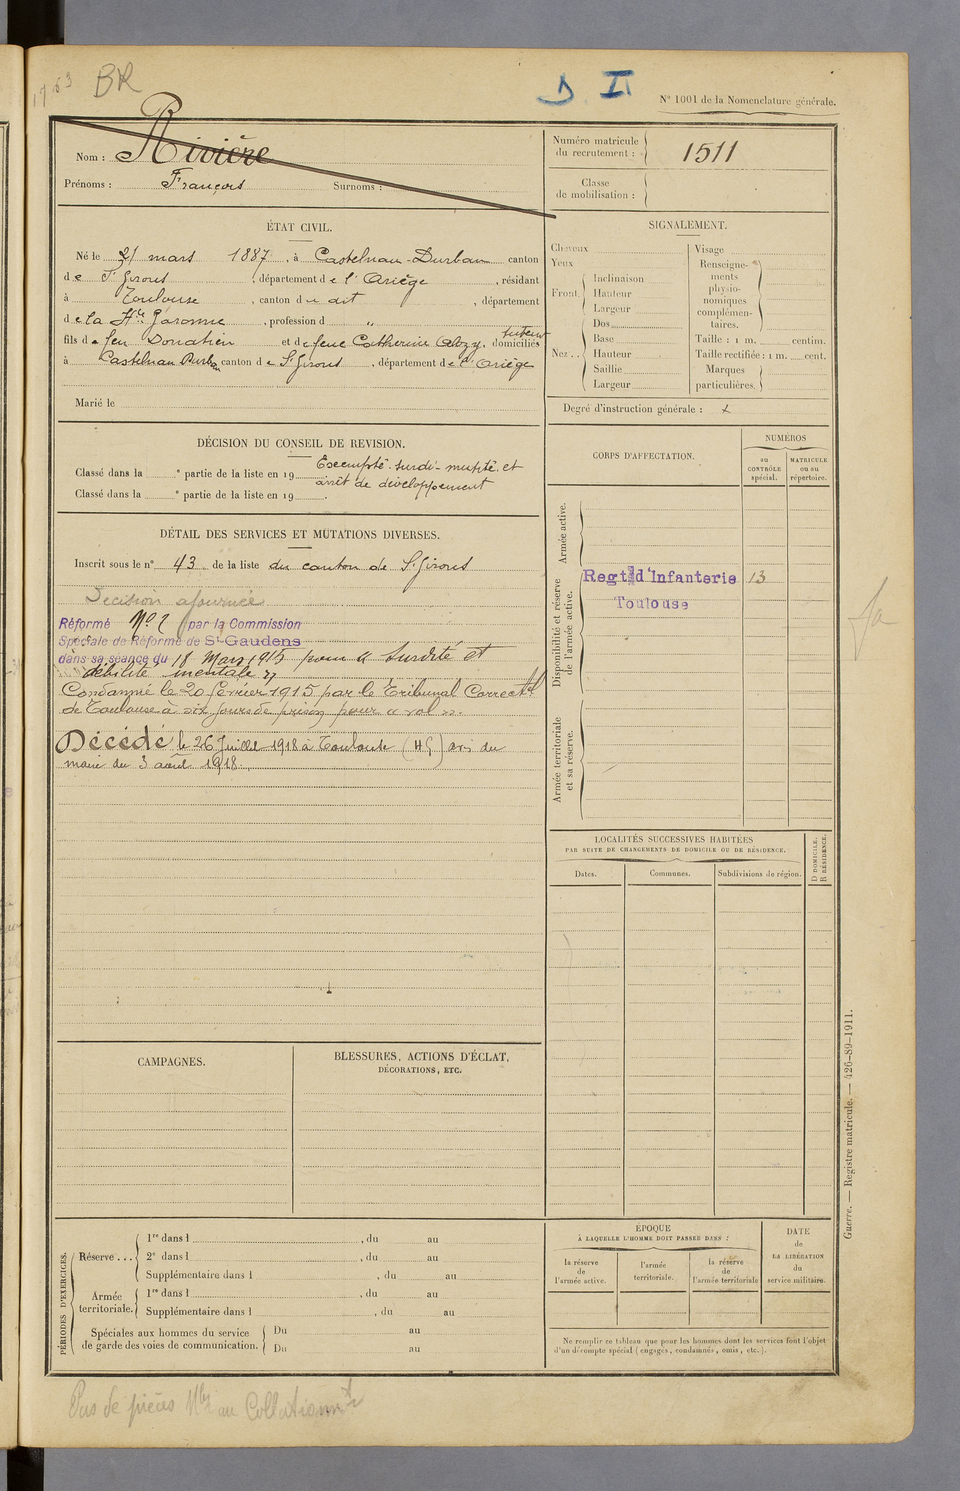 BR
D II
N° 1001 de la Nomenclature générale.
Nom : Rivière
Prénoms : François Surnoms :
Numéro matricule du recrutement : 1511
Classe de mobilisation :
ÉTAT CIVIL.
Né le 31 mars 1887, à Castelnau-Durban canton
de St Girons, département de l'Ariège, résidant
à Toulouse, canton du dit, département
de la Hte Garonne, profession d "
fils de feu Donatien et de feue Catherine, domiciliés tuteur
à Castelnau Durban canton de St Girons, département de l'Ariège
Marié le
SIGNALEMENT.
Cheveux
Yeux
Front. Inclinaison
Hauteur
Largeur
Nez... Dos
Base
Hauteur
Saillie
Largeur
Visage
Renseignements physionomiques complémentaires.
Taille : 1 m. centim.
Taille rectifiée : 1 m. cent.
Marques particulières.
Degré d'instruction générale : x
DÉCISION DU CONSEIL DE REVISION.
Classé dans la e partie de la liste en 19 Exempté. surdi-mutité et
arrêt de développement
Classé dans la e partie de la liste en 19 .
DÉTAIL DES SERVICES ET MUTATIONS DIVERSES.
Inscrit sous le n° 43 de la liste du canton de St Girons
Décision ajournée
Réformé No 2 par la Commission
Spéciale de Réforme de St-Gaudens
dans sa séance du 18 Mars 1915 pour « surdité et
débilité mentale »
Condamné le 20 février 1915 par le Tribunal Correctel
de Toulouse à six jours de prison pour « vol ».
Décédé le 26 Juillet 1918 à Toulouse (HG) avis du
maire du 3 août 1918.
CORPS D'AFFECTATION.
NUMÉROS
au CONTRÔLE spécial.
MATRICULE ou au répertoire.
Armée active.
Disponibilité et réserve de l'armée active.
Regt d'Infanterie 13
Toulouse
Armée territoriale et sa réserve.
LOCALITÉS SUCCESSIVES HABITÉES
PAR SUITE DE CHANGEMENTS DE DOMICILE OU DE RÉSIDENCE.
D DOMICILE. R RÉSIDENCE.
Dates. Communes. Subdivisions de région.
CAMPAGNES.
BLESSURES, ACTIONS D'ÉCLAT,
DÉCORATIONS, ETC.
PÉRIODES D'EXERCICES.
Réserve... 1re dans l , du au
2e dans l , du au
Supplémentaire dans l , du au
Armée territoriale. 1re dans l , du au
Supplémentaire dans l , du au
Spéciales aux hommes du service
de garde des voies de communication. Du au
Du au
ÉPOQUE
À LAQUELLE L'HOMME DOIT PASSER DANS :
la réserve de l'armée active.
l'armée territoriale.
la réserve de l'armée territoriale
DATE de LA LIBÉRATION du service militaire.
Ne remplir ce tableau que pour les hommes dont les services font l'objet
d'un décompte spécial (engagés, condamnés, omis, etc.).
Guerre. — Registre matricule. — 426-89-1911.
Pas de pièces